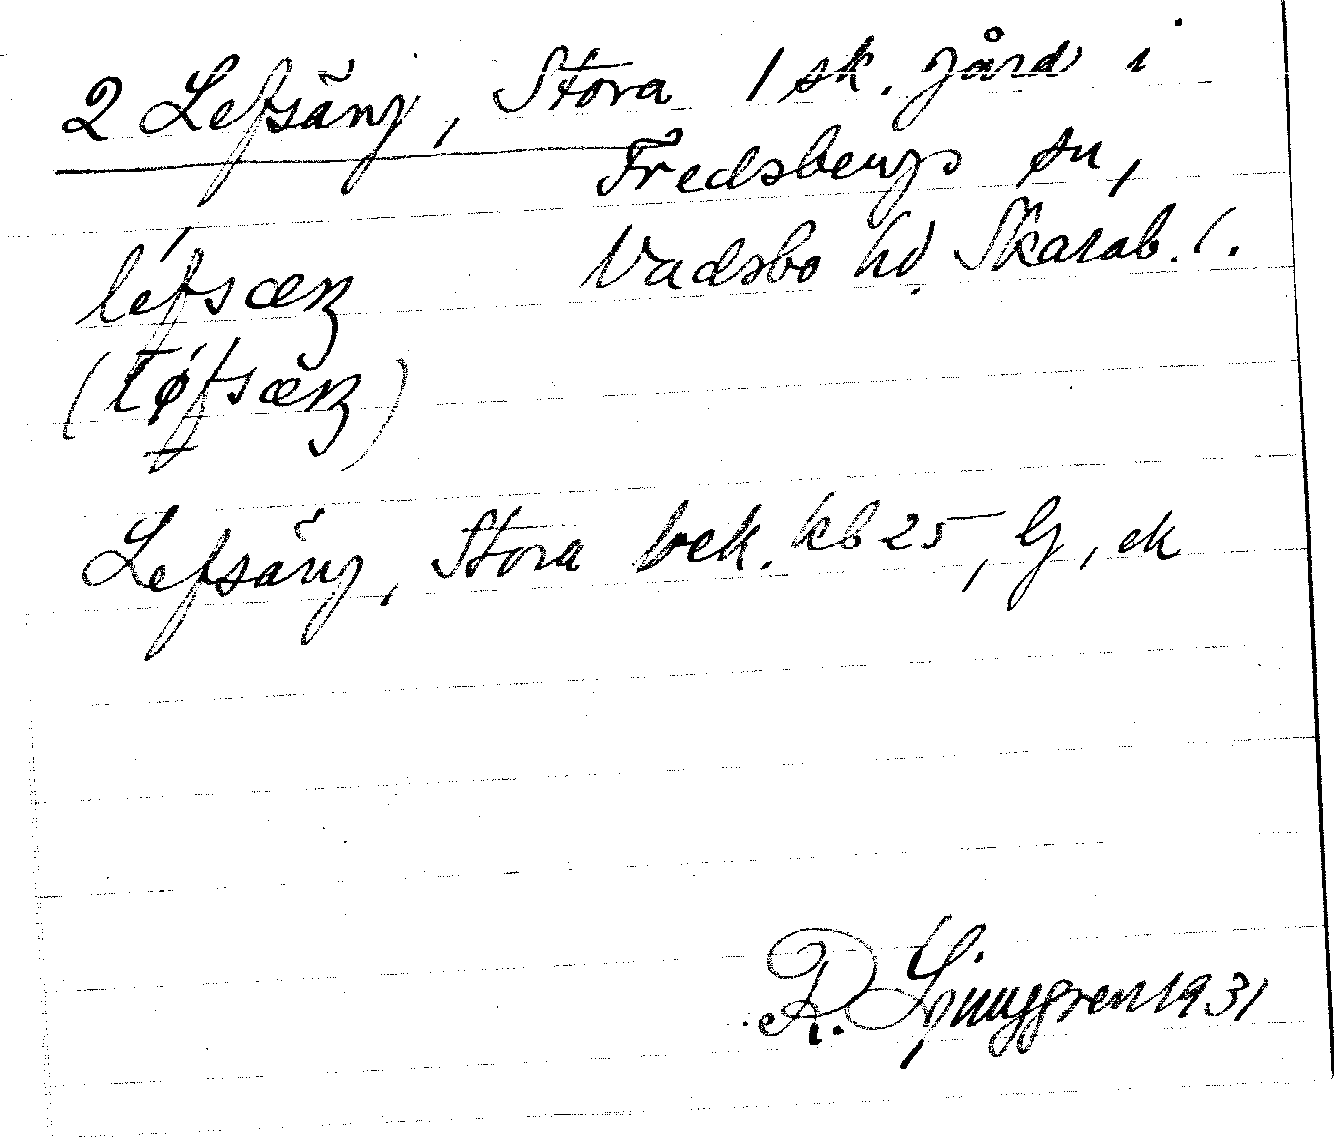 2 Lefsäng, Stora 1 sk. gård i
Fredsbergs sn,
Vadsbo hd. Skarab. l.
léfsæŋ
(Løfsæŋ)
Lefsäng, Stora bek. kb 25, G, ek
R. Ljunggren 1931